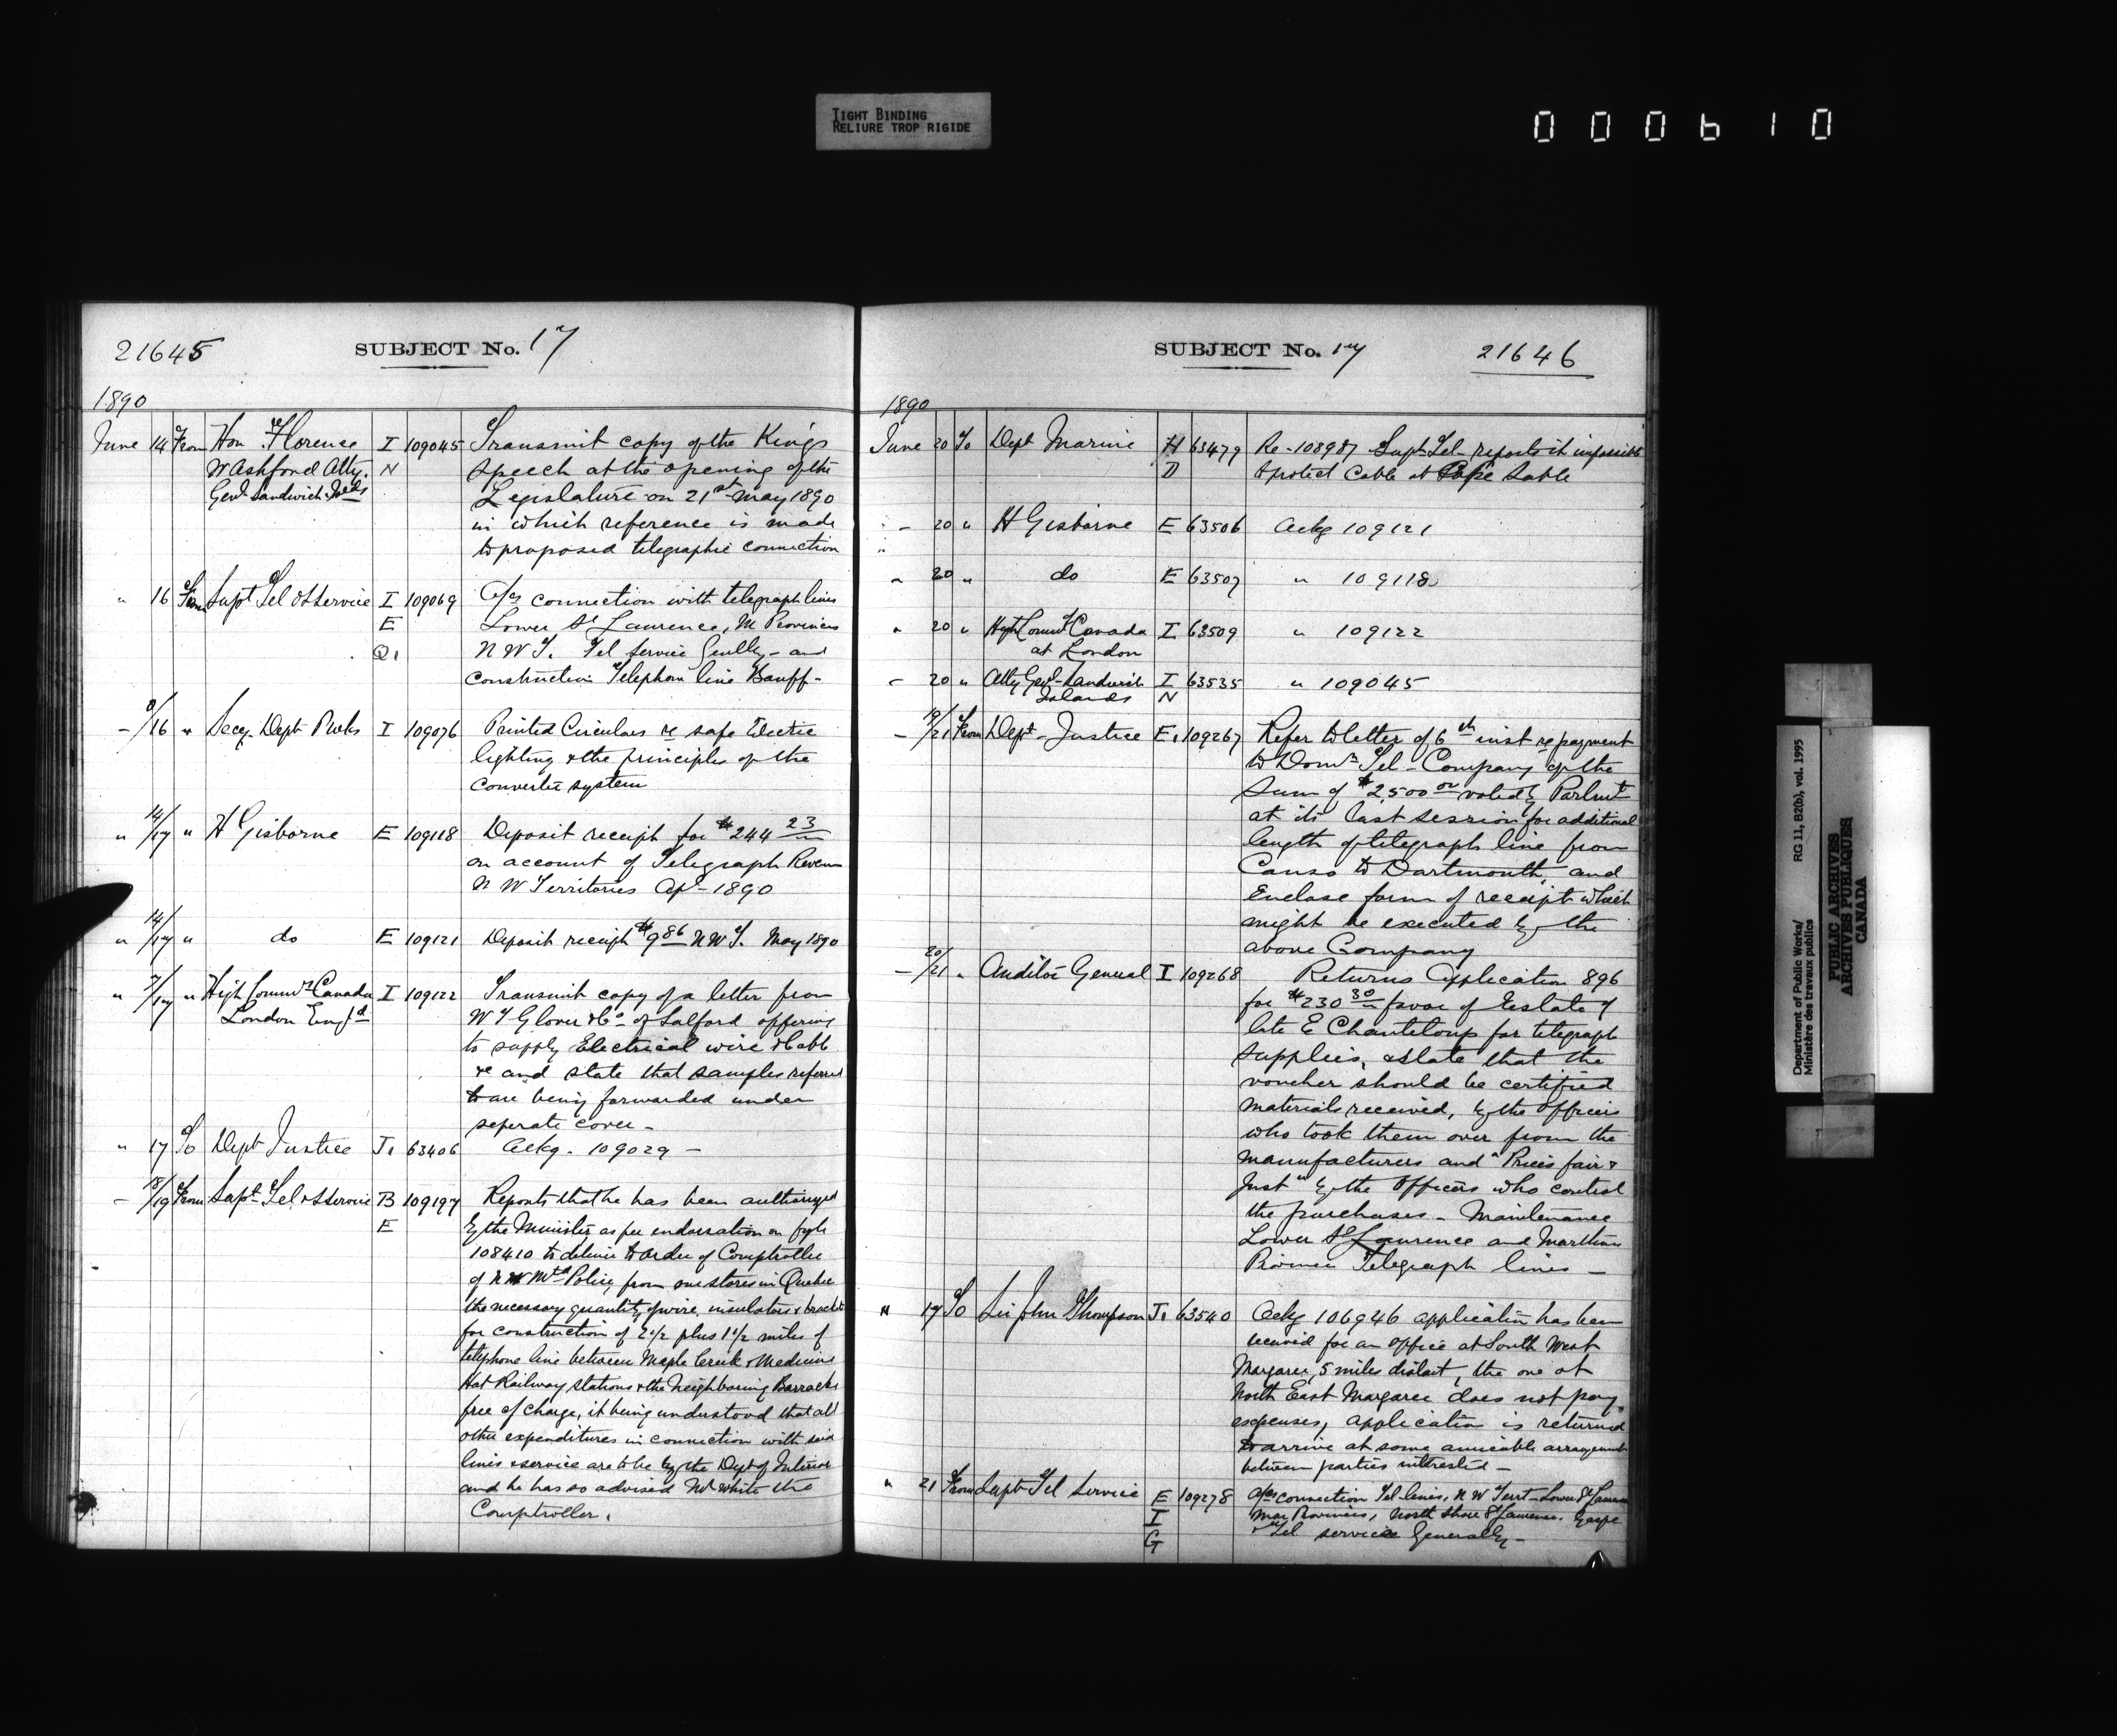 TIGHT BINDING
RELIURE TROP RIGIDE
000610
21645 SUBJECT No. 17
1890
June 14 From Hon re Florence I 109045 Transmit copy of the Kings
W Ashford Atty. N speech at the opening of the
Genl Sandwich Isl'ds Legislature on 21st May 1890
in which reference is made
to proposed telegraphic connection
" 16 From Supt Tel & S Service I 109069 A/cs connection with telegraph lines
E Lower St Laurence, M Provinces
Q1 N W T. Tel Service Genlly - and
construction Telephone line Banff -
- 8/16 " Secy Dept I 109076 Printed Circulars re safe Electric
lighting & the principles of the
converter system
" 14/17 " H Gisborne E 109118 Deposit receipt for $244 23
on account of Telegraph Reven
N W Territories Apl - 1890
" 14/17 " do E 109121 Deposit receipt $9 86 N W T. May 1890
" 7/17 " High Commr Canada I 109122 Transmit copy of a letter from
London Engd W T Glover & Co of Salford offering
to supply Electrical wire & Cable
&c and state that samples referred
to are being forwarded under
seperate cover -
" 17 To Dept Justice J1 63406 Ackg. 109029 -
- 18/19 From Supt Tel & S Service B 109197 Reports that he has been authorized
E by the Minister as per endorsation on
108410 to deliver to order of Comptroller
of N W Mtd Police, from our stores in Quebec
the necessary quantity of wire, insulators & brackets
for construction of 2 1/2 plus 1 1/2 miles of
telephone line between Maple Creek & Medicine
Hat Railway stations & the Neighboring Barracks
free of charge, it being understood that all
other expenditures in connection with said
lines & service are to be by the Dept of Interior
and he has so advised Mr White the
Comptroller.
SUBJECT No. 17 21646
1890
June 20 To Dept Marine H 63479 Re - 108987 Supt Tel - reports it impossible
D to protect Cable at Cape Sable
- 20 " H Gisborne E 63506 Ackg 109121
"
" 20 " do E 63507 " 109118
" 20 " High Commr Canada I 63509 " 109122
at London
- 20 " Atty Genl - Sandwich I 63535 " 109045
Islands N
- 19/21 From Dept - Justice E1 109267 Refer to letter of 6th inst re payment
to Domn Tel - Company of the
sum of $2,500 00 voted by Parlmt
at its last session for additional
length of telegraph line from
Canso to Dartmouth, and
Enclose form of receipt which
might be executed by the
above Company
- 20/21 " Auditor General I 109268 Returns Application 896
for $230 30 favor of Estate of
late E Chanteloup for telegraph
supplies, & state that the
voucher should be certified
materials received, by the Officers
who took them over from the
manufacturers and "Prices fair &
Just" by the Officers who control
the purchases - Maintenance
Lower St Laurence and Maritime
Province Telegraph lines -
" 19 To Sir John Thompson J1 63540 Ackg 106946 application has been
received for an office at South West
Margaree, 5 miles distant, the one at
North East Margaree does not pay
expenses, application is returned
to arrive at some amicable arrangement
between parties interested -
" 21 From Supt Tel Service E 109278 A/cs connection Tel lines, N W Terrt - Lower St Laurence
I Mar Provinces, North Shore St Laurence. Gaspe
G & Tel service Generally -
Department of Public Works/
Ministère des travaux publics
RG 11, B2(b), vol. 1995
PUBLIC ARCHIVES
ARCHIVES PUBLIQUES
CANADA